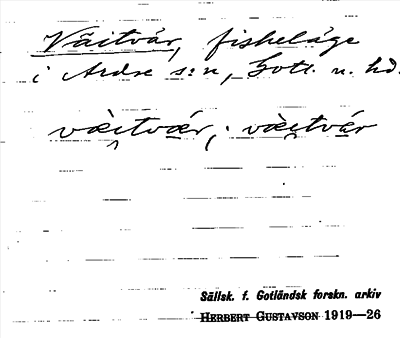 Väitvár, fiskeläge
i Ardre s:n, Gotl. n. hd.
väi̯tvár; väi̯tvár
Sällsk. f. Gotländsk forskn. arkiv
HERBERT GUSTAVSON 1919—26